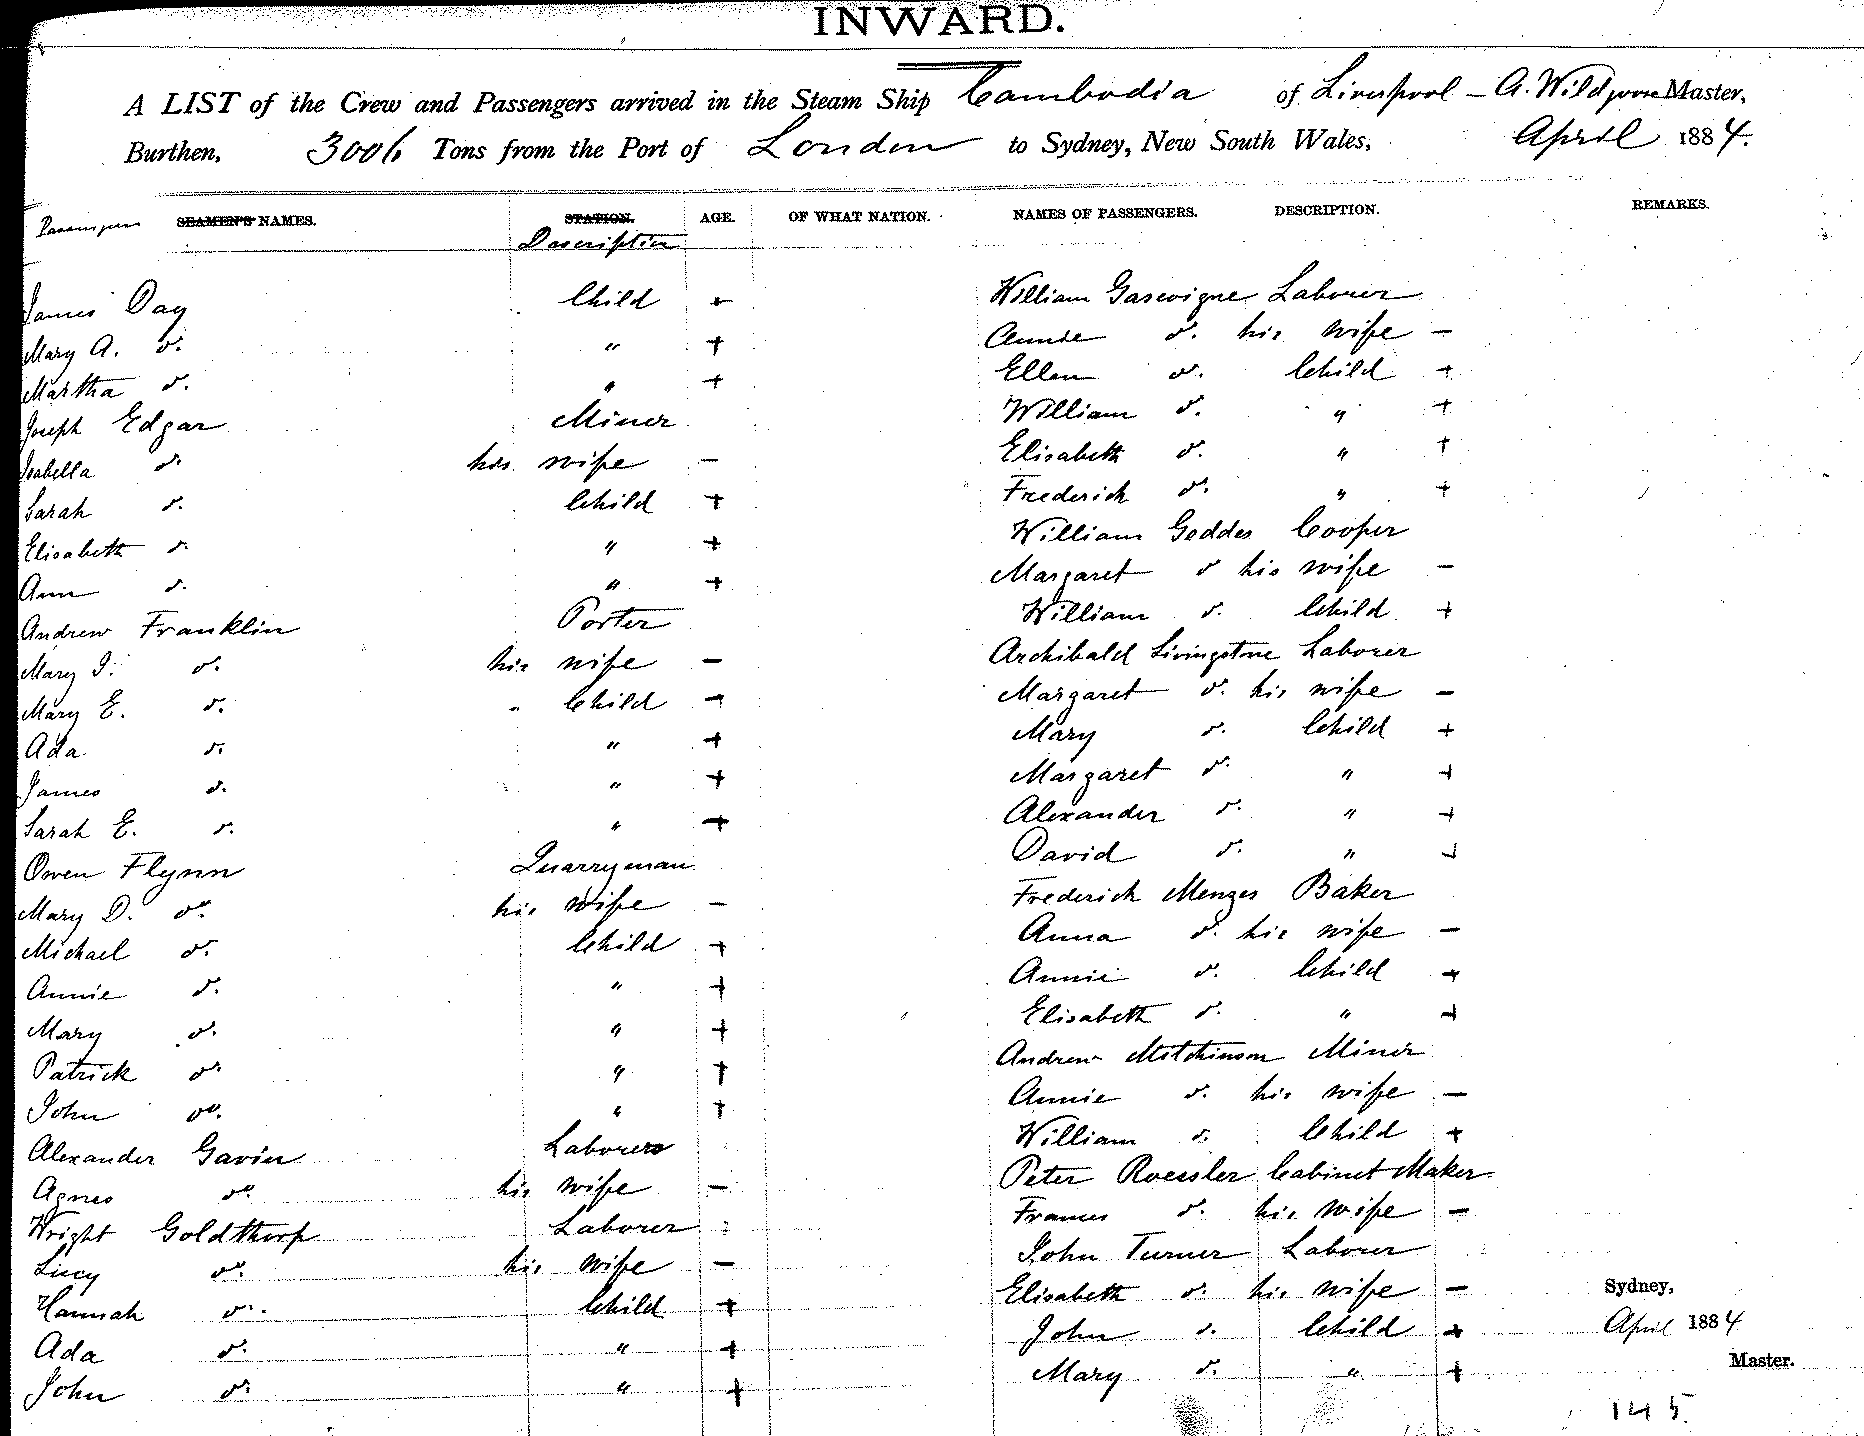 INWARD.
A LIST of the Crew and Passengers arrived in the Steam Ship Cambodia of Liverpool - A. Wildgoose Master,
Burthen, 3006 Tons from the Port of London to Sydney, New South Wales, April 1884.
Passengers SEAMEN'S NAMES. STATION. AGE. OF WHAT NATION. NAMES OF PASSENGERS. DESCRIPTION. REMARKS.
Description
James Day Child +
Mary A. do. " +
Martha do. " +
Joseph Edgar Miner
Isabella do. his wife -
Sarah do. Child +
Elisabeth do. " +
Ann do. " +
Andrew Franklin Porter
Mary J. do. his wife -
Mary E. do. Child +
Ada do. " +
James do. " +
Sarah E. do. " +
Owen Flynn Quarryman
Mary D. do. his wife -
Michael do. Child +
Annie do. " +
Mary do. " +
Patrick do. " +
John do. " +
Alexander Gavin Laborer
Agnes do. his wife -
Wright Goldthorp Laborer
Lucy do. his wife -
Hannah do. Child +
Ada do. " +
John do. " +
William Gascoigne Laborer
Annie do. his wife -
Ellen do. Child +
William do. " +
Elisabeth do. " +
Frederick do. " +
William Geddes Cooper
Margaret do his wife -
William do. Child +
Archibald Livingstone Laborer
Margaret do. his wife -
Mary do. Child +
Margaret do. " +
Alexander do. " +
David do. " +
Frederick Menges Baker
Anna do. his wife -
Annie do. Child +
Elisabeth do. " +
Andrew Mitchinson Miner
Annie do. his wife -
William do. Child +
Peter Roessler Cabinet Maker
Frances do. his wife -
John Turner Laborer
Elisabeth do. his wife -
John do. Child +
Mary do. " +
Sydney,
April 1884
Master.
145